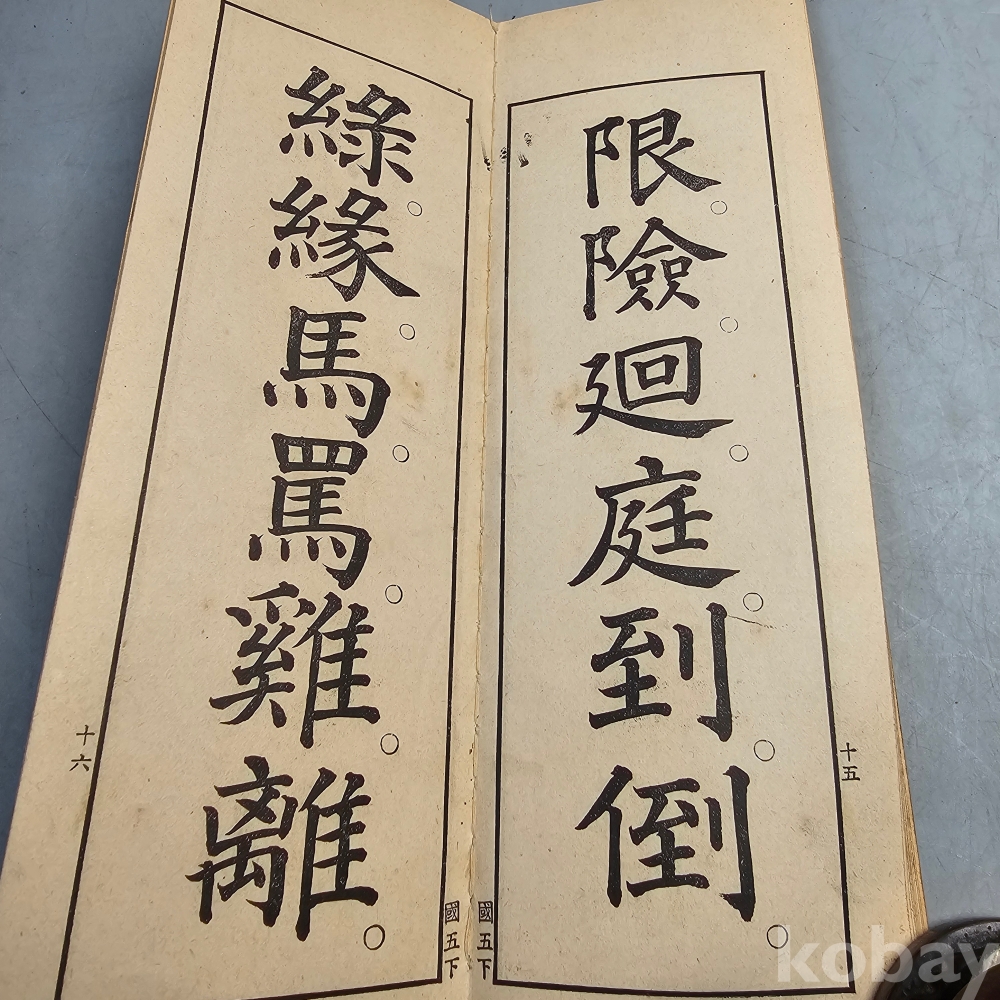 限險廻庭到倒
十五
國五下
綠緣馬罵雞離
十六
國五下
kobay